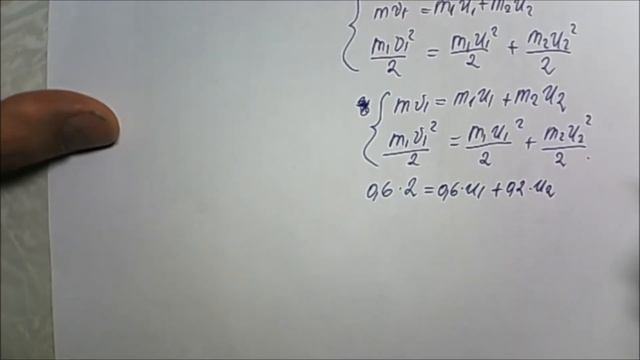 mv₁ = m₁u₁ + m₂u₂
m₁v₁²/2 = m₁u₁²/2 + m₂u₂²/2
mv₁ = m₁u₁ + m₂u₂
m₁v₁²/2 = m₁u₁²/2 + m₂u₂²/2
0,6·2 = 0,6·u₁ + 0,2·u₂